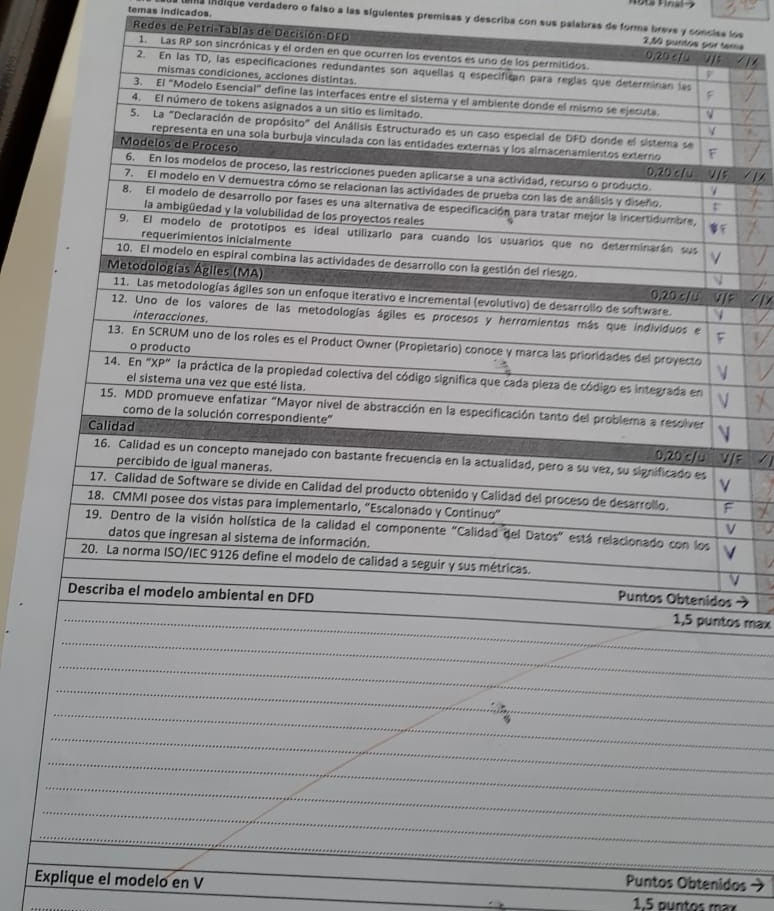 indique verdadero o falso a las siguientes premisas y describa con sus palabras de forma breve y concisa los
temas indicados.
Nota Final→
2,50 puntos por tema
Redes de Petri-Tablas de Decisión-DFD 0,20 c/u V/F ✓/X
1. Las RP son sincrónicas y el orden en que ocurren los eventos es uno de los permitidos. F
2. En las TD, las especificaciones redundantes son aquellas q especifican para reglas que determinan las
mismas condiciones, acciones distintas. F
3. El "Modelo Esencial" define las interfaces entre el sistema y el ambiente donde el mismo se ejecuta. V
4. El número de tokens asignados a un sitio es limitado. V
5. La "Declaración de propósito" del Análisis Estructurado es un caso especial de DFD donde el sistema se
representa en una sola burbuja vinculada con las entidades externas y los almacenamientos externo F
Modelos de Proceso 0,20 c/u V/F ✓/X
6. En los modelos de proceso, las restricciones pueden aplicarse a una actividad, recurso o producto. V
7. El modelo en V demuestra cómo se relacionan las actividades de prueba con las de análisis y diseño. F
8. El modelo de desarrollo por fases es una alternativa de especificación para tratar mejor la incertidumbre,
la ambigüedad y la volubilidad de los proyectos reales F
9. El modelo de prototipos es ideal utilizarlo para cuando los usuarios que no determinarán sus
requerimientos inicialmente V
10. El modelo en espiral combina las actividades de desarrollo con la gestión del riesgo. V
Metodologías Ágiles (MA) 0,20 c/u V/F ✓/X
11. Las metodologías ágiles son un enfoque iterativo e incremental (evolutivo) de desarrollo de software. V
12. Uno de los valores de las metodologías ágiles es procesos y herramientas más que individuos e
interacciones. F
13. En SCRUM uno de los roles es el Product Owner (Propietario) conoce y marca las prioridades del proyecto
o producto V
14. En "XP" la práctica de la propiedad colectiva del código significa que cada pieza de código es integrada en
el sistema una vez que esté lista. V
15. MDD promueve enfatizar "Mayor nivel de abstracción en la especificación tanto del problema a resolver
como de la solución correspondiente" V
Calidad 0,20 c/u V/F ✓/
16. Calidad es un concepto manejado con bastante frecuencia en la actualidad, pero a su vez, su significado es
percibido de igual maneras. V
17. Calidad de Software se divide en Calidad del producto obtenido y Calidad del proceso de desarrollo. F
18. CMMI posee dos vistas para implementarlo, "Escalonado y Continuo" V
19. Dentro de la visión holística de la calidad el componente "Calidad del Datos" está relacionado con los
datos que ingresan al sistema de información. V
20. La norma ISO/IEC 9126 define el modelo de calidad a seguir y sus métricas. V
Puntos Obtenidos →
Describa el modelo ambiental en DFD 1,5 puntos max
Explique el modelo en V Puntos Obtenidos →
1,5 puntos max